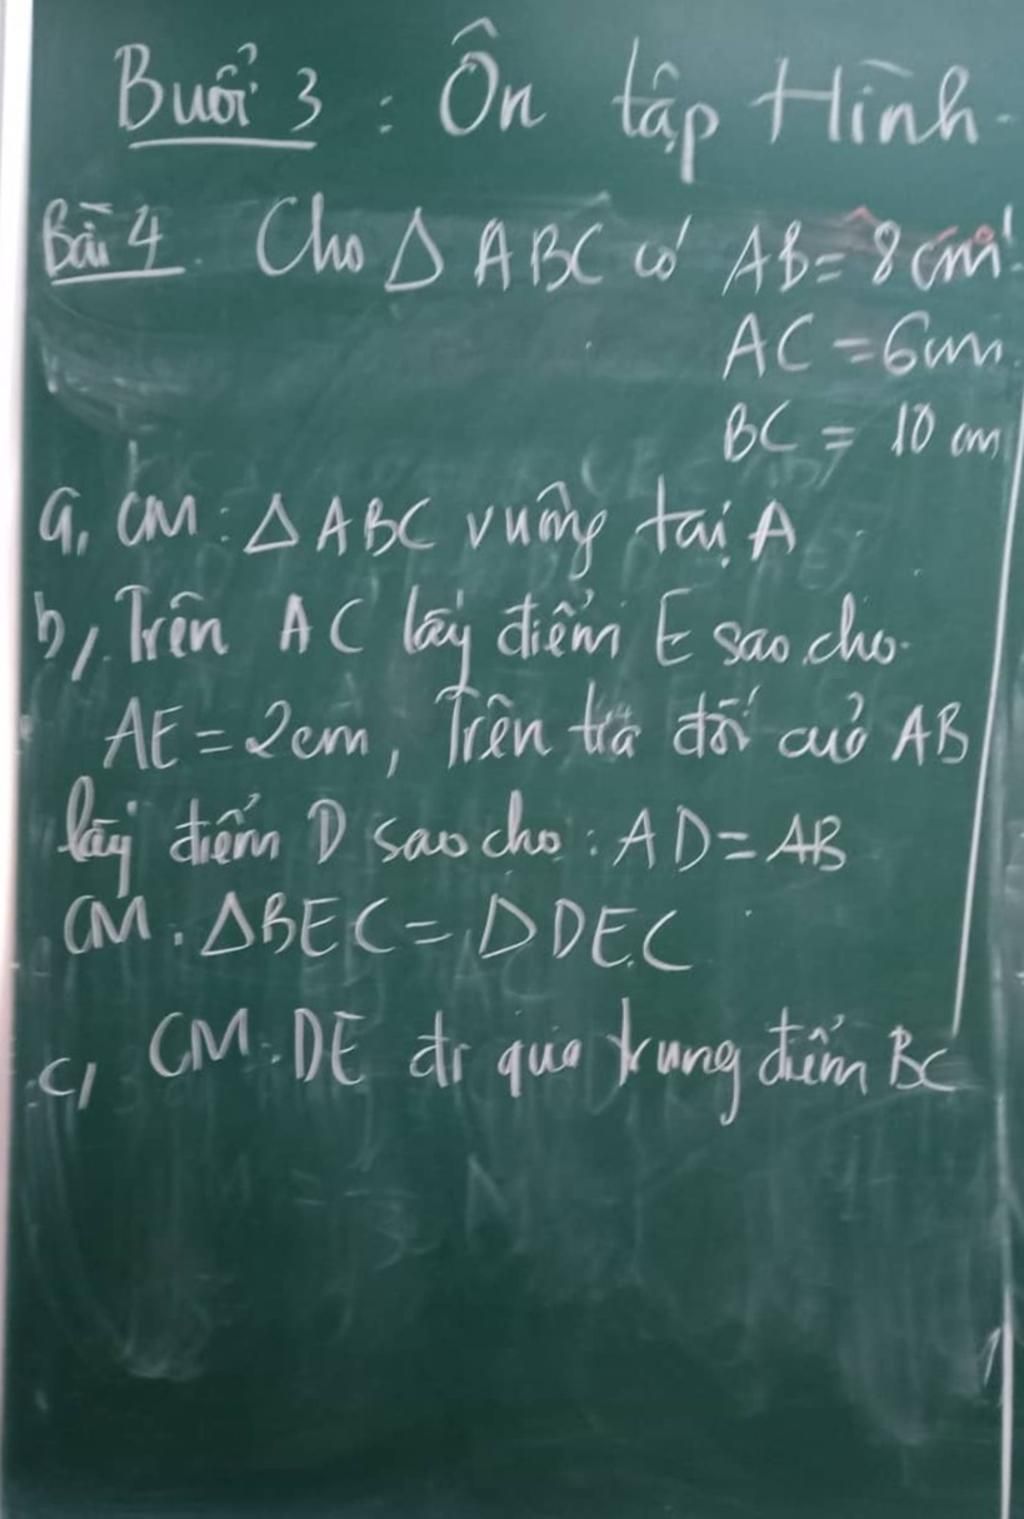 Buổi 3 : Ôn tập Hình
Bài 4. Cho △ABC có AB = 8 cm
AC = 6cm
BC = 10 cm
a, CM : △ABC vuông tại A
b, Trên AC lấy điểm E sao cho
AE = 2cm, Trên tia đối của AB
lấy điểm D sao cho : AD = AB
CM. △BEC = △DEC
c, CM. DE đi qua trung điểm BC